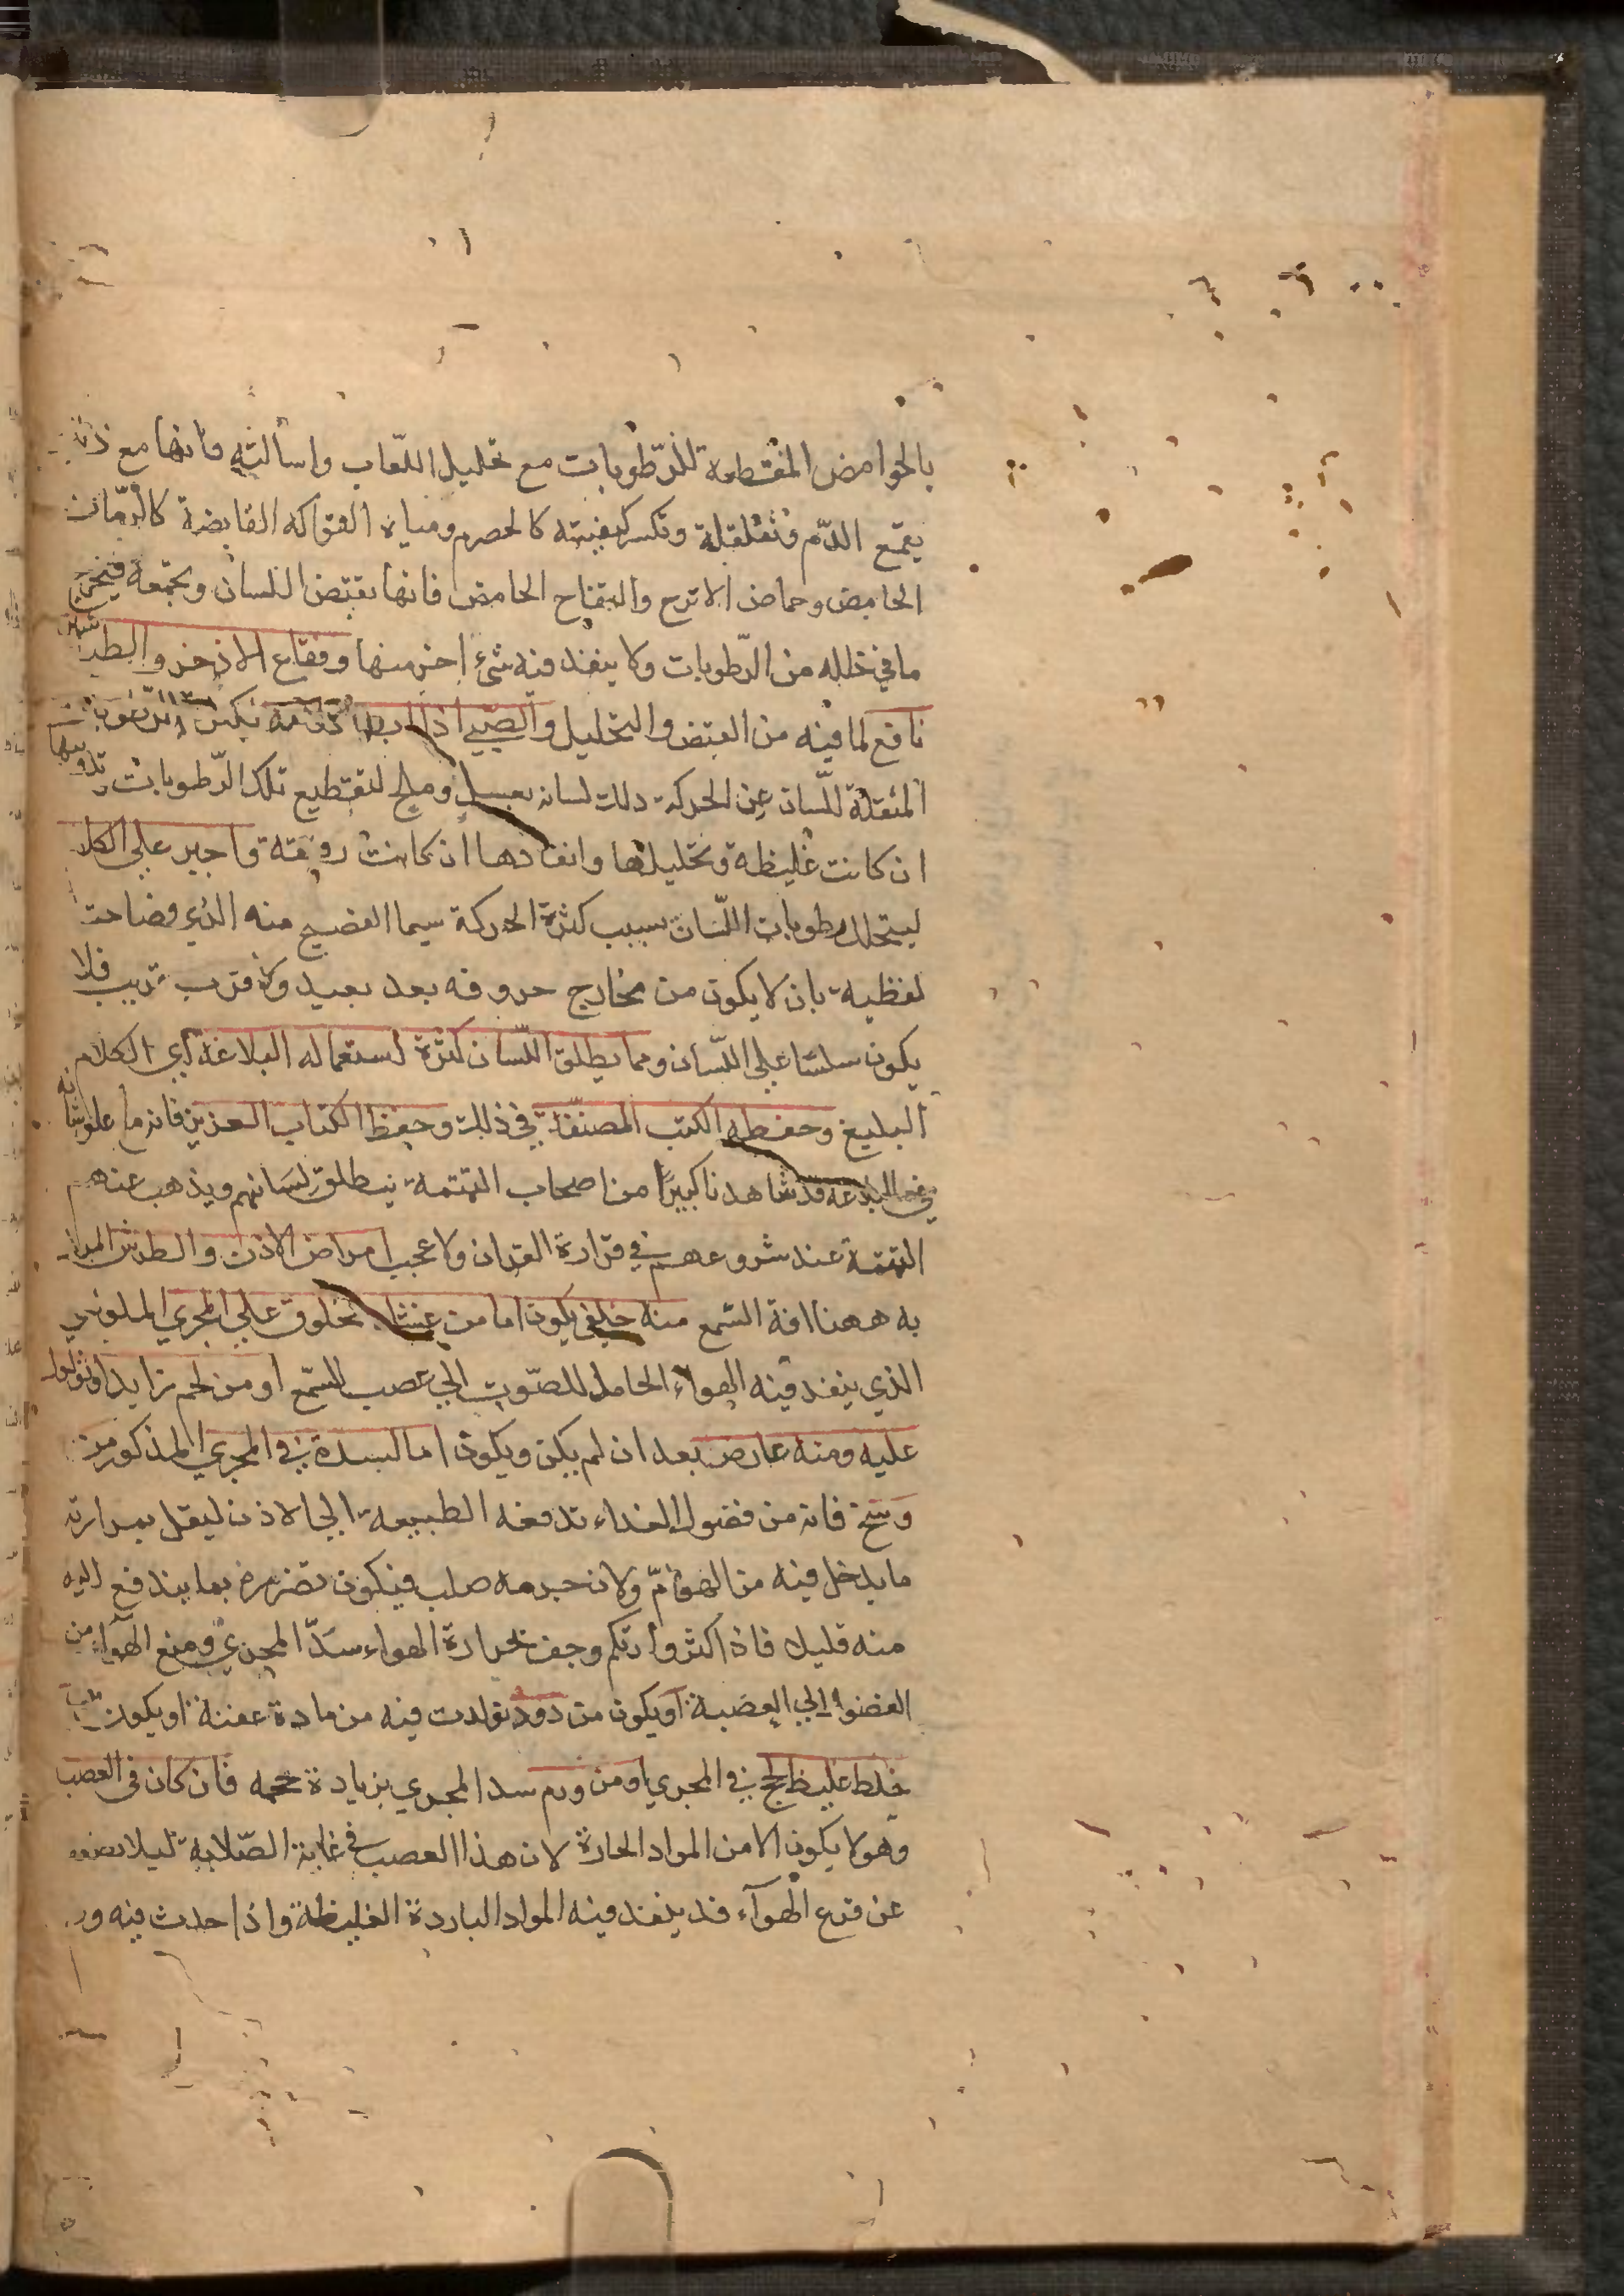 بالحوامض المقطعة للرّطوبات مع تحليل اللّعاب واسالته فانها مع ذلك
يقمع الدّم وتقلقلة وتكسر كيفيته كالحصرم ومياه الفواكه القابضة كالرّمان
الحامض وحماض الاترج والتفاح الحامض فانها تقبض اللسان وتجمعه فيخرج
ما في خلله من الرّطوبات ولا ينفذ فيه شئ اخر منها وفقاع الاذخر والطبا
نافع لما فيه من القبض والتحليل والصّبي اذا ابطا كلامه يكبس الرّطوبات
المثقلة للّسان عن الحركة دلك لسانه بعسل وملح لتقطيع تلك الرّطوبات وتذويبها
ان كانت غليظة وتحليلها وانفادها ان كانت رقيقة واجبر علي الكلا
ليتحلل رطوبات اللّسان بسبب كثرة الحركة سيما الفصيح منه الذي فصاحته
لفظيه بان لا يكون من مخارج حروفه بعد بعيد ولا قرب قريب فلا
يكون سلسًا علي اللّسان ومما يطلق اللّسان كثرة استعماله البلاغة اي الكلام
البليغ وحفظه الكتب المصنّفة في ذلك وحفظ الكتاب العزيز فانه ما علو شانه
في البلاغة قد شاهدنا كبيرًا من اصحاب التمتمة ينطلق لسانهم ويذهب عنهم
التمتمة عند شروعهم في قراءة القران ولا عجب امراض الاذن والطرش المراد
به ههنا افة السّمع منه خلقي يكون اما من غشاء مخلوق علي المجري الملولبي
الذي ينفذ فيه الهواء الحامل للصّوت الي عصب السّمع او من لحم زايد او ثؤلول
عليه ومنه عارض بعد ان لم يكن ويكون اما لسدة في المجري المذكور من
وسخ فانه من فضول الغذاء تدفعه الطبيعة الي الاذن ليقتل بمرارته
ما يدخل فيه من الهوامّ ولان جرمه صلب فيكون تضرره بما يندفع اليه
منه قليل فاذا كثر وارتكم وجف بحرارة الهواء سدّ المجري ومنع الهوآء من
النفوذ الي العصبة او يكون من دود تولدت فيه من مادة عفنة او يكون من
خلط غليظ لحج في المجري او من ورم سد المجري بزيادة حجمه فان كان في العصب
وهو لا يكون الا من المواد الحارة لان هذا العصب في غاية الصّلابة ليلا
عن قرع الهوآء فد ينفذ فيه المواد الباردة الغليظة واذا حدث فيه ور